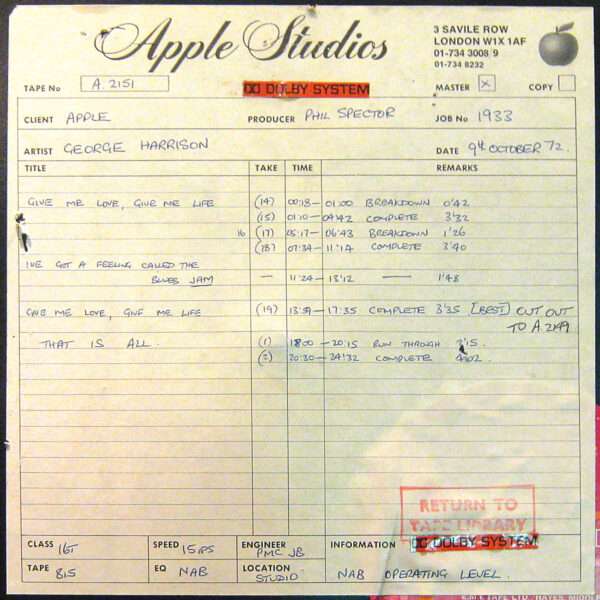 Apple Studios
3 SAVILE ROW
LONDON W1X 1AF
01-734 3008 9
01-734 8232
TAPE No A.2151 DOLBY SYSTEM MASTER X COPY
CLIENT APPLE PRODUCER PHIL SPECTOR JOB No 1933
ARTIST GEORGE HARRISON DATE 9th OCTOBER 72.
TITLE TAKE TIME REMARKS
GIVE ME LOVE, GIVE ME LIFE (14) 00:18 – 01:00 BREAKDOWN 0'42
(15) 01:10 – 04'42 COMPLETE 3'32
16 (17) 05:17 – 06'43 BREAKDOWN 1'26
(18) 07:34 – 11'14 COMPLETE 3'40
I'VE GOT A FEELING CALLED THE
BLUES JAM — 11'24 – 13'12 — 1'48
GIVE ME LOVE, GIVE ME LIFE (19) 13'59 – 17:35 COMPLETE 3'35 [BEST] CUT OUT
TO A 2149
THAT IS ALL. (1) 18:00 – 20:15 RUN THROUGH 2'15.
(2) 20:30 – 24'32 COMPLETE 4'02
RETURN TO
TAPE LIBRARY
DOLBY SYSTEM
CLASS 16T SPEED 15 IPS ENGINEER PMC JB INFORMATION
TAPE 815 EQ NAB LOCATION STUDIO NAB OPERATING LEVEL.